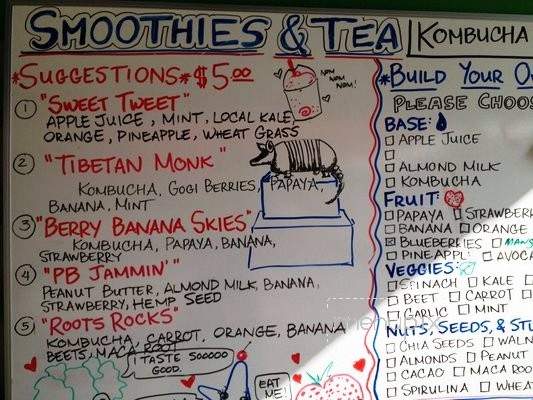 SMOOTHIES & TEA
KOMBUCHA
*SUGGESTIONS* $5.00
NOM NOM NOM!
① "SWEET TWEET"
APPLE JUICE, MINT, LOCAL KALE,
ORANGE, PINEAPPLE, WHEAT GRASS
② "TIBETAN MONK"
KOMBUCHA, GOGI BERRIES, PAPAYA,
BANANA, MINT
③ "BERRY BANANA SKIES"
KOMBUCHA, PAPAYA, BANANA,
STRAWBERRY
④ "PB JAMMIN'"
PEANUT BUTTER, ALMOND MILK, BANANA,
STRAWBERRY, HEMP SEED
⑤ "ROOTS ROCKS"
KOMBUCHA, CARROT, ORANGE, BANANA
BEETS, MACA ROOT
I TASTE SOOOOO
GOOD.
EAT
ME!
*BUILD YOUR O
PLEASE CHOOS
BASE:
APPLE JUICE
ALMOND MILK
KOMBUCHA
FRUIT:
PAPAYA STRAWBER
BANANA ORANGE
BLUEBERRIES MAN
PINEAPPLE AVOCA
VEGGIES:
SPINACH KALE
BEET CARROT
GARLIC MINT
NUTS, SEEDS, & STU
CHIA SEEDS WALN
ALMONDS PEANUT
CACAO MACA ROO
SPIRULINA WHEA